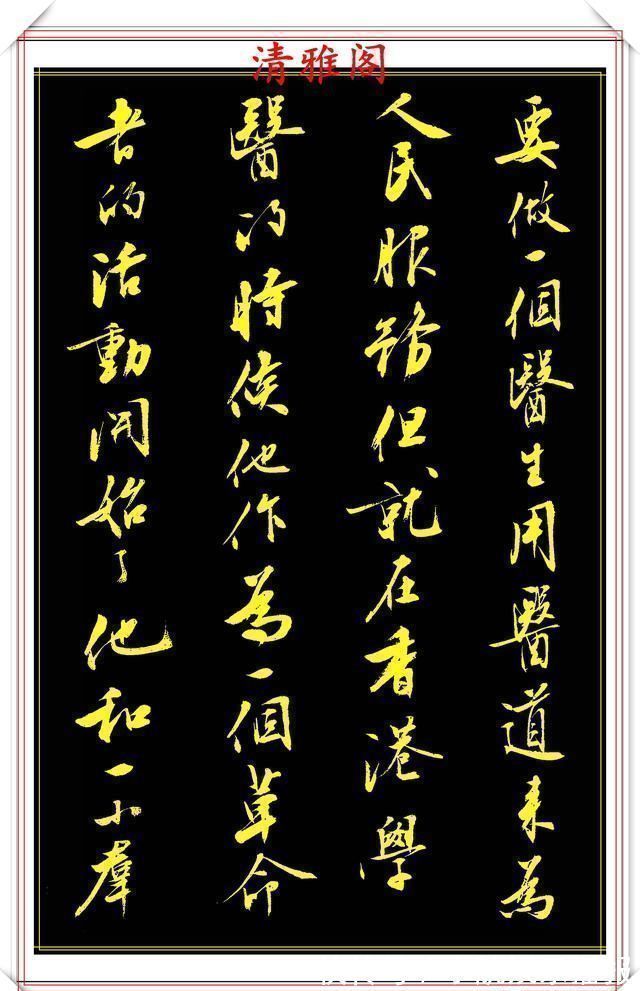 清雅阁
要做一個醫生用醫道来為
人民服務但就在香港學
醫的時候他作為一個革命
者的活動開始了他和一小群